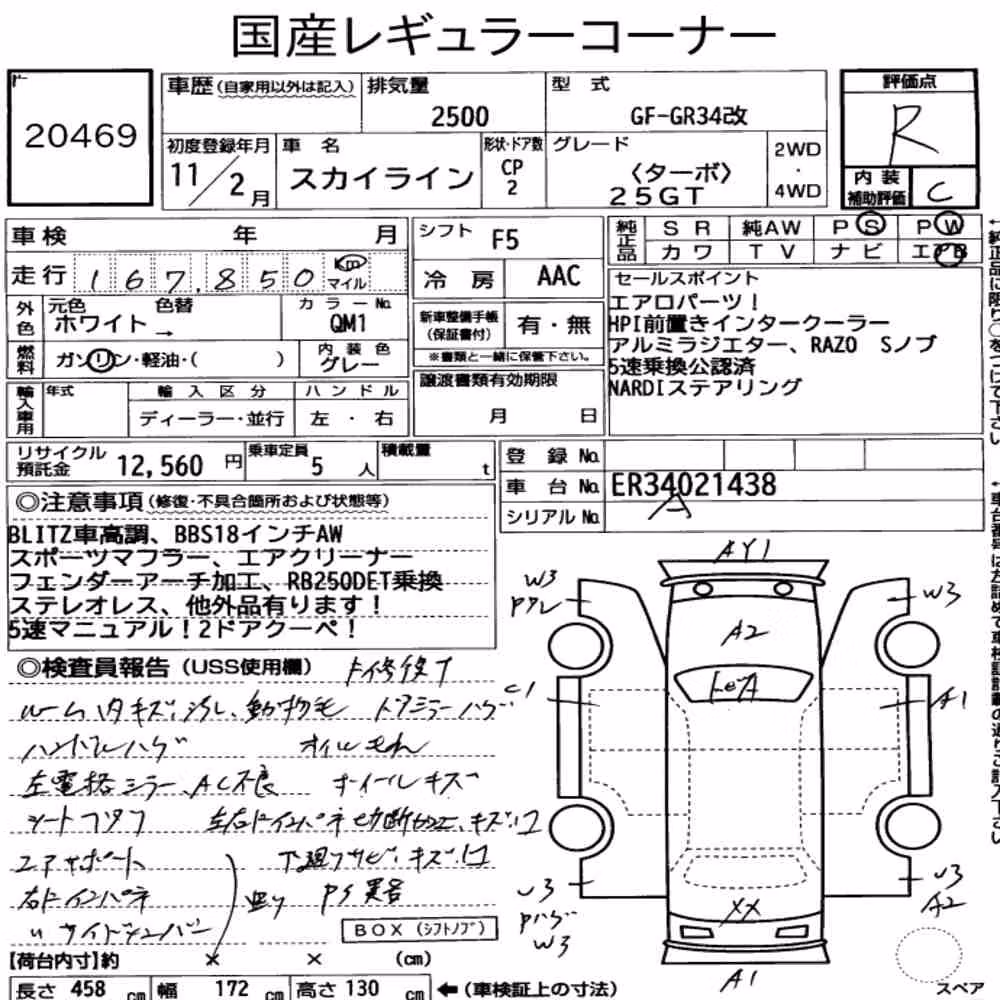 国産レギュラーコーナー
20469
車歴(自家用以外は記入) 排気量 2500
型 式 GF-GR34改
評価点 R
初度登録年月 11/2月
車 名 スカイライン
形状・ドア数 CP 2
グレード 〈ターボ〉 25GT
2WD ・ 4WD
内装補助評価 C
車検 年 月
シフト F5
純正品 S R 純AW P S P W
カ ワ T V ナ ビ エアB
走行 167,850 Km マイル
冷 房 AAC
外色 元色 ホワイト → 色替
カラーNo. QM1
新車整備手帳(保証書付) 有・無
※書類と一緒に保管下さい。
燃料 ガソリン・軽油・( )
内装色 グレー
譲渡書類有効期限 月 日
輸入車用 年式 輸入区分 ディーラー・並行
ハンドル 左 ・ 右
セールスポイント
エアロパーツ!
HPI前置きインタークーラー
アルミラジエター、RAZO Sノブ
5速乗換公認済
NARDIステアリング
リサイクル預託金 12,560 円
乗車定員 5 人
積載量 t
登 録 No.
車 台 No. ER34021438
A
シリアル No.
◎注意事項(修復・不具合箇所および状態等)
BLITZ車高調、BBS18インチAW
スポーツマフラー、エアクリーナー
フェンダーアーチ加工、RB250DET乗換
ステレオレス、他外品有ります!
5速マニュアル!2ドアクーペ!
◎検査員報告(USS使用欄)
ルーム内キズ、汚れ、動物毛 ドアミラーハゲ
ハンドルハゲ オイルもれ
左電格ミラー、AC不良 ホイールキズ
シートフタフ
エアサポート 下廻りサビ、キズ、凹
右ドインパネ
〃サイドシルバー
BOX(シフトノブ)
AY1
W3
W3
A2
A1
W3
A2
XX
W3
A1
スペア
【荷台内寸】約 × × (cm)
長さ 458 cm 幅 172 cm 高さ 130 cm ←(車検証上の寸法)